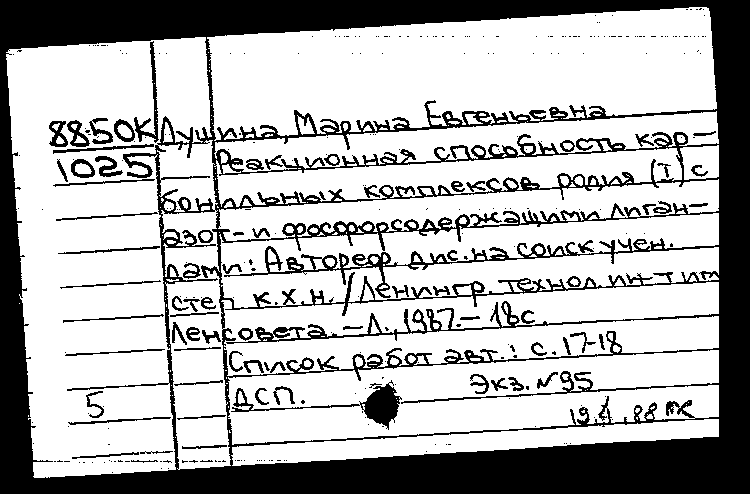 88-50К Душина, Марина Евгеньевна
1025 Реакционная способность кар-
бонильных комплексов родия (I) с
азот- и фосфорсодержащими лиган-
дами: Автореф. дис. на соиск. учен.
степ. к.х.н. / Ленингр. технол. ин-т им
Ленсовета. – Л., 1987. – 18 с.
Список работ авт.: с. 17-18
5 ДСП. Экз. №95
19.1.88